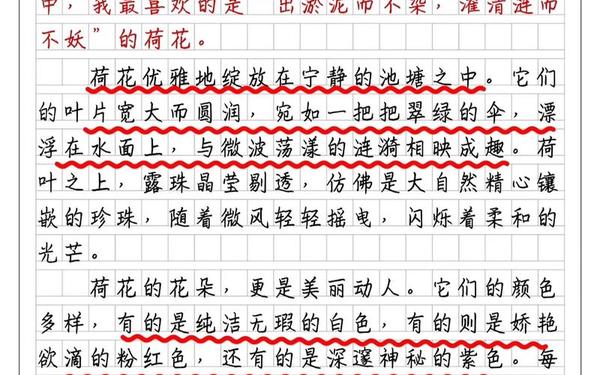 中，我最喜欢的是“出淤泥而不染，濯清涟而
不妖”的荷花。
荷花优雅地绽放在宁静的池塘之中。它们
的叶片宽大而圆润，宛如一把把翠绿的伞，漂
浮在水面上，与微波荡漾的涟漪相映成趣。荷
叶之上，露珠晶莹剔透，仿佛是大自然精心镶
嵌的珍珠，随着微风轻轻摇电，闪烁着柔和的
光芒。
荷花的花朵，更是美丽动人。它们的颜色
多样，有的是纯洁无瑕的白色，有的则是娇艳
欲滴的粉红色，还有的是深邃神秘的紫色。每